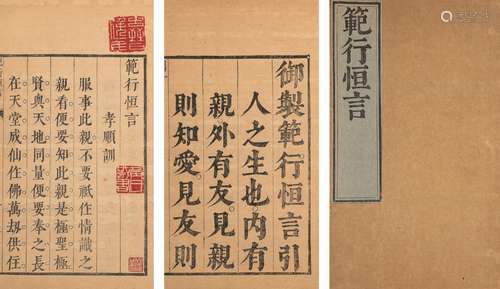 範行恒言
御製範行恒言引
人之生也。內有
親外有友。見親
則知愛。見友則
範行恒言
孝順訓
服事此親不要祇作情識之
親看便要知此親是極聖極
賢與天地同量便要奉之長
在天堂成仙作佛萬劫供